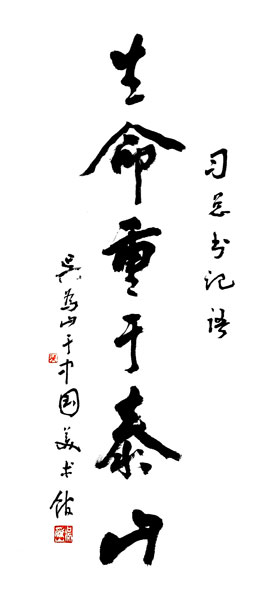 生命重于泰山
习总书记语
吴为山于中国美术馆